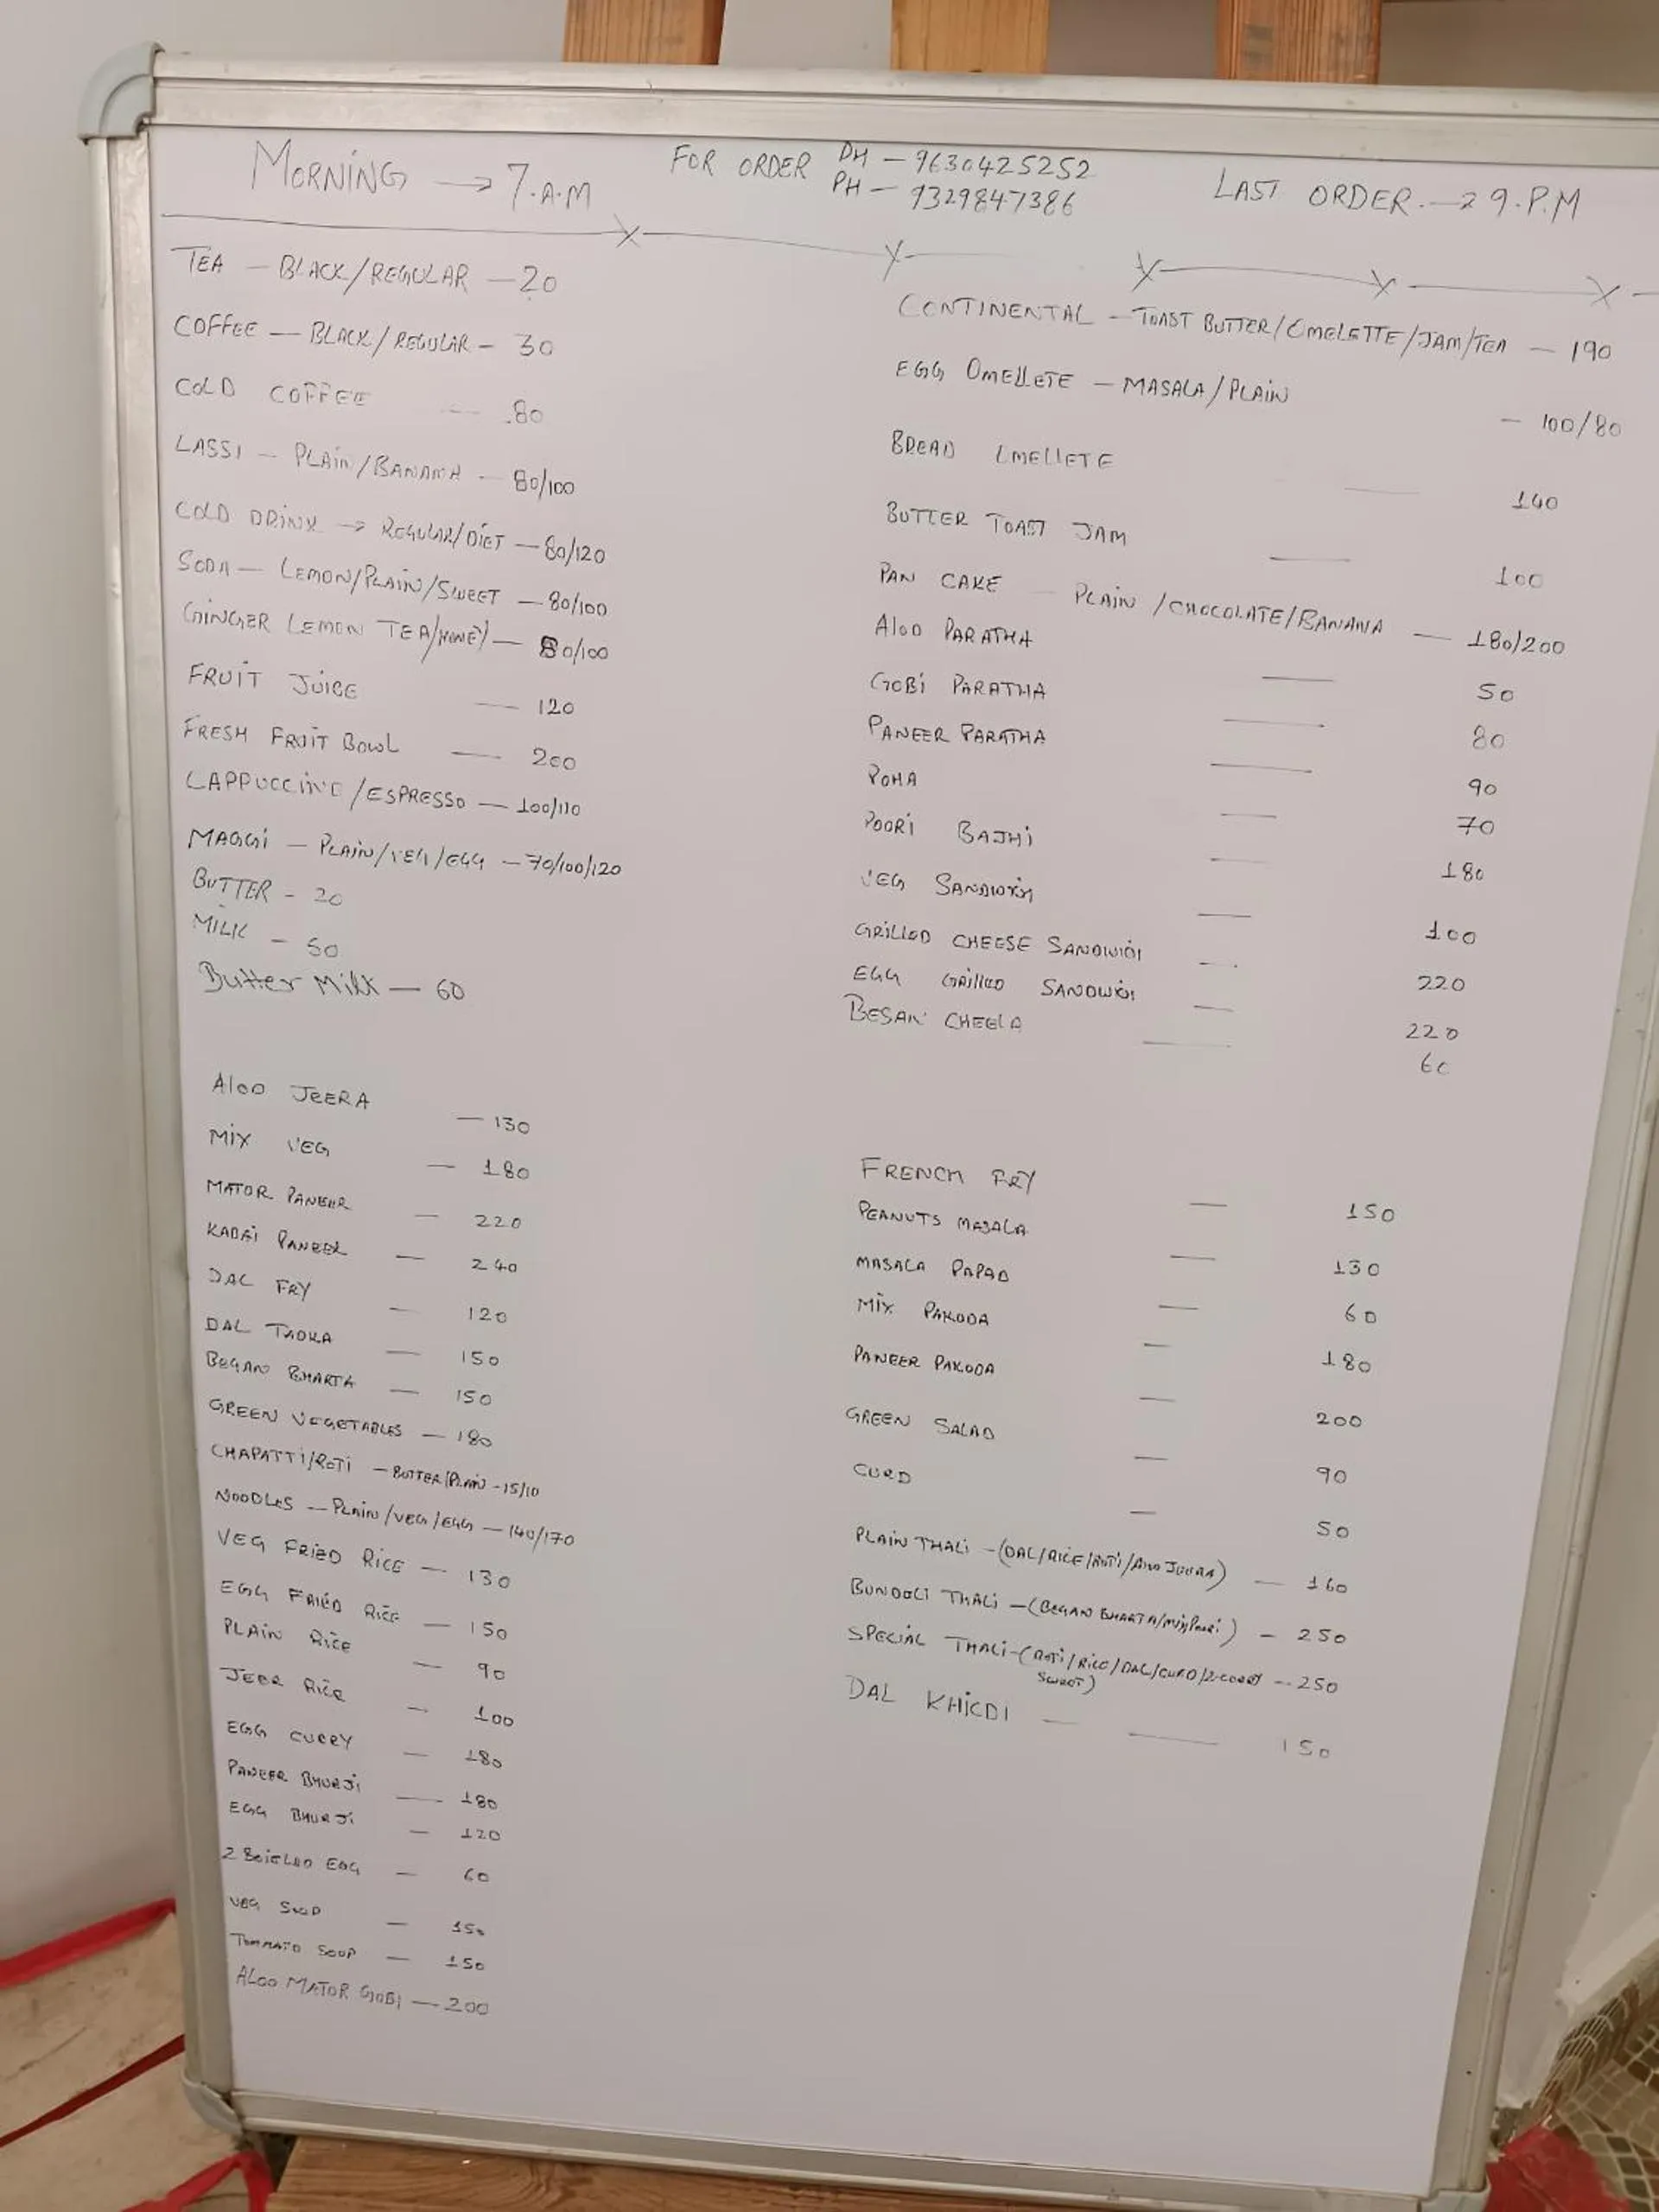 MORNING → 7.A.M
FOR ORDER PH – 9630425252
PH – 9329847386
LAST ORDER.→ 9.P.M
TEA – BLACK/REGULAR – 20
COFFEE – BLACK/REGULAR – 30
COLD COFFEE — 80
LASSI – PLAIN/BANANA – 80/100
COLD DRINK → REGULAR/DIET – 80/120
SODA – LEMON/PLAIN/SWEET – 80/100
GINGER LEMON TEA/HONEY – 80/100
FRUIT JUICE — 120
FRESH FRUIT BOWL — 200
CAPPUCCINO/ESPRESSO – 100/110
MAGGI – PLAIN/VEG/EGG – 70/100/120
BUTTER – 20
MILK – 50
Butter Milk – 60
CONTINENTAL – TOAST BUTTER/OMELETTE/JAM/TEA – 190
EGG OMELLETE – MASALA/PLAIN – 100/80
BREAD OMELLETE — 140
BUTTER TOAST JAM — 100
PAN CAKE – PLAIN/CHOCOLATE/BANANA — 180/200
ALOO PARATHA — 50
GOBI PARATHA — 80
PANEER PARATHA — 90
POHA — 70
POORI BAJHI — 180
VEG SANDWICH — 100
GRILLED CHEESE SANDWICH — 220
EGG GRILLED SANDWICH — 220
BESAN CHEELA — 60
ALOO JEERA — 130
MIX VEG — 180
MATOR PANEER — 220
KADAI PANEER — 240
DAL FRY — 120
DAL TADKA — 150
BEGAN BHARTA — 150
GREEN VEGETABLES – 180
CHAPATTI/ROTI – BUTTER/PLAIN – 15/10
NOODLES – PLAIN/VEG/EGG – 140/170
VEG FRIED RICE – 130
EGG FRIED RICE – 150
PLAIN RICE — 90
JEER RICE — 100
EGG CURRY — 180
PANEER BHURJI — 180
EGG BHURJI — 120
2 BOIELED EGG — 60
VEG SOUP — 150
TOMMATO SOUP — 150
ALOO MATOR GOBI – 200
FRENCH FRY — 150
PEANUTS MASALA — 130
MASALA PAPAD — 60
MIX PAKODA — 180
PANEER PAKODA — 200
GREEN SALAD — 90
CURD — 50
PLAIN THALI – (DAL/RICE/ROTI/ALOO JEERA) — 160
BUNDELI THALI – (BEGAN BHARTA/MIX/POORI) – 250
SPECIAL THALI – (ROTI/RICE/DAL/CURD/2 – 250
SWEET)
DAL KHICDI — 150